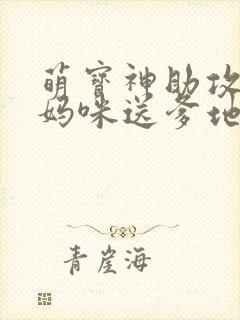 萌寶神助攻
媽咪送爹地
青崖海